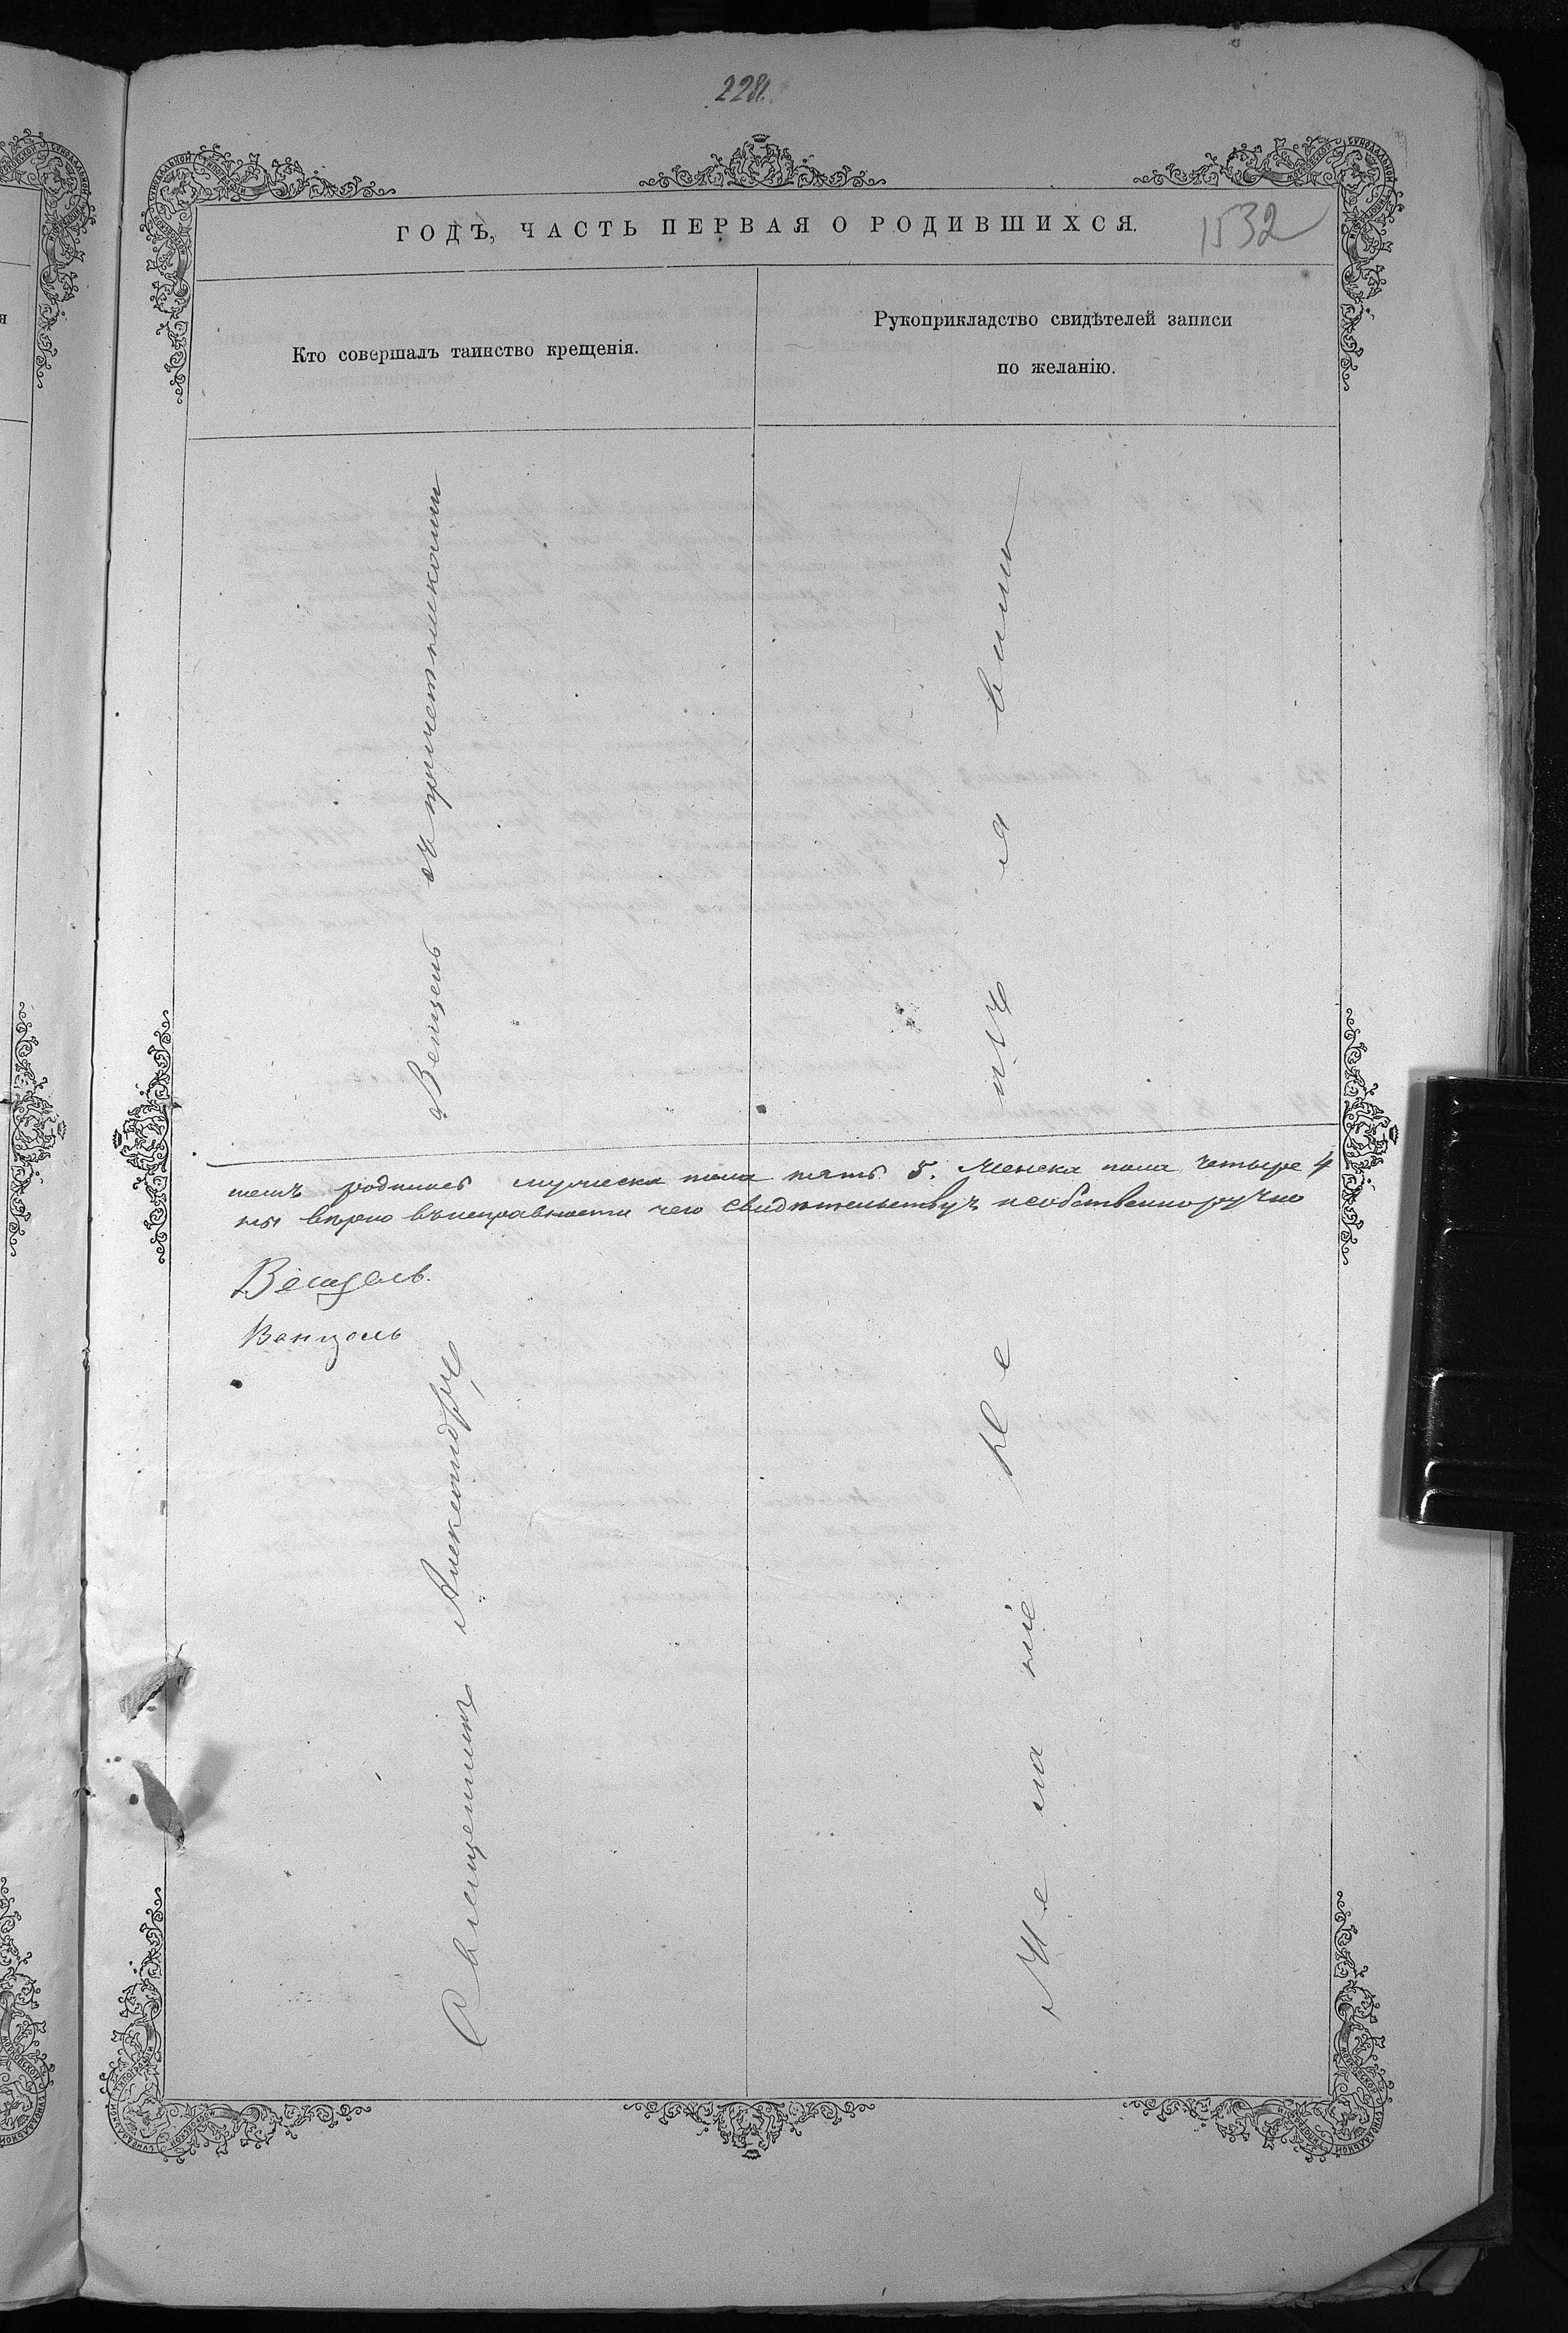 228
1532
ГОДЪ, ЧАСТЬ ПЕРВАЯ О РОДИВШИХСЯ.
Кто совершалъ таинство крещенія.
Рукоприкладство свидѣтелей записи
по желанію.
Священникъ Александръ Венцель съ причетниками
Желаніе не изъявили
родилось мужеска пола пять 5. Женска пола четыре 4
вѣрно въ исправности чего свидѣтельствуемъ собственноручно
Венцель.
Венцель